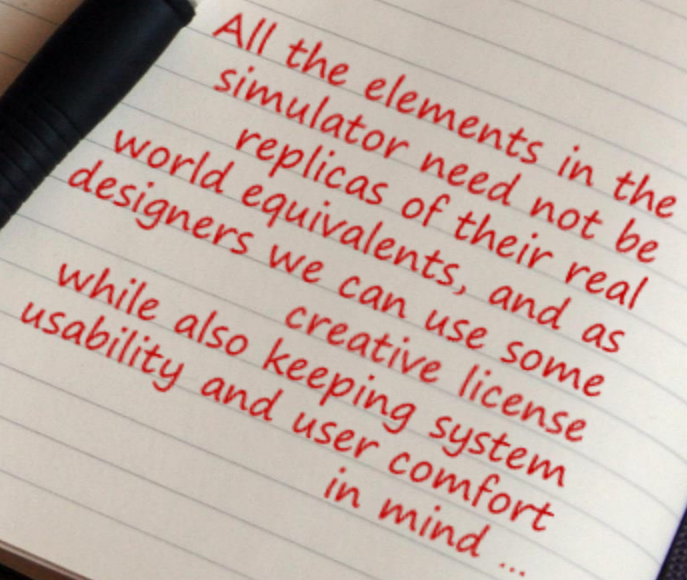 All the elements in the
simulator need not be
replicas of their real
world equivalents, and as
designers we can use some
creative license
while also keeping system
usability and user comfort
in mind ...